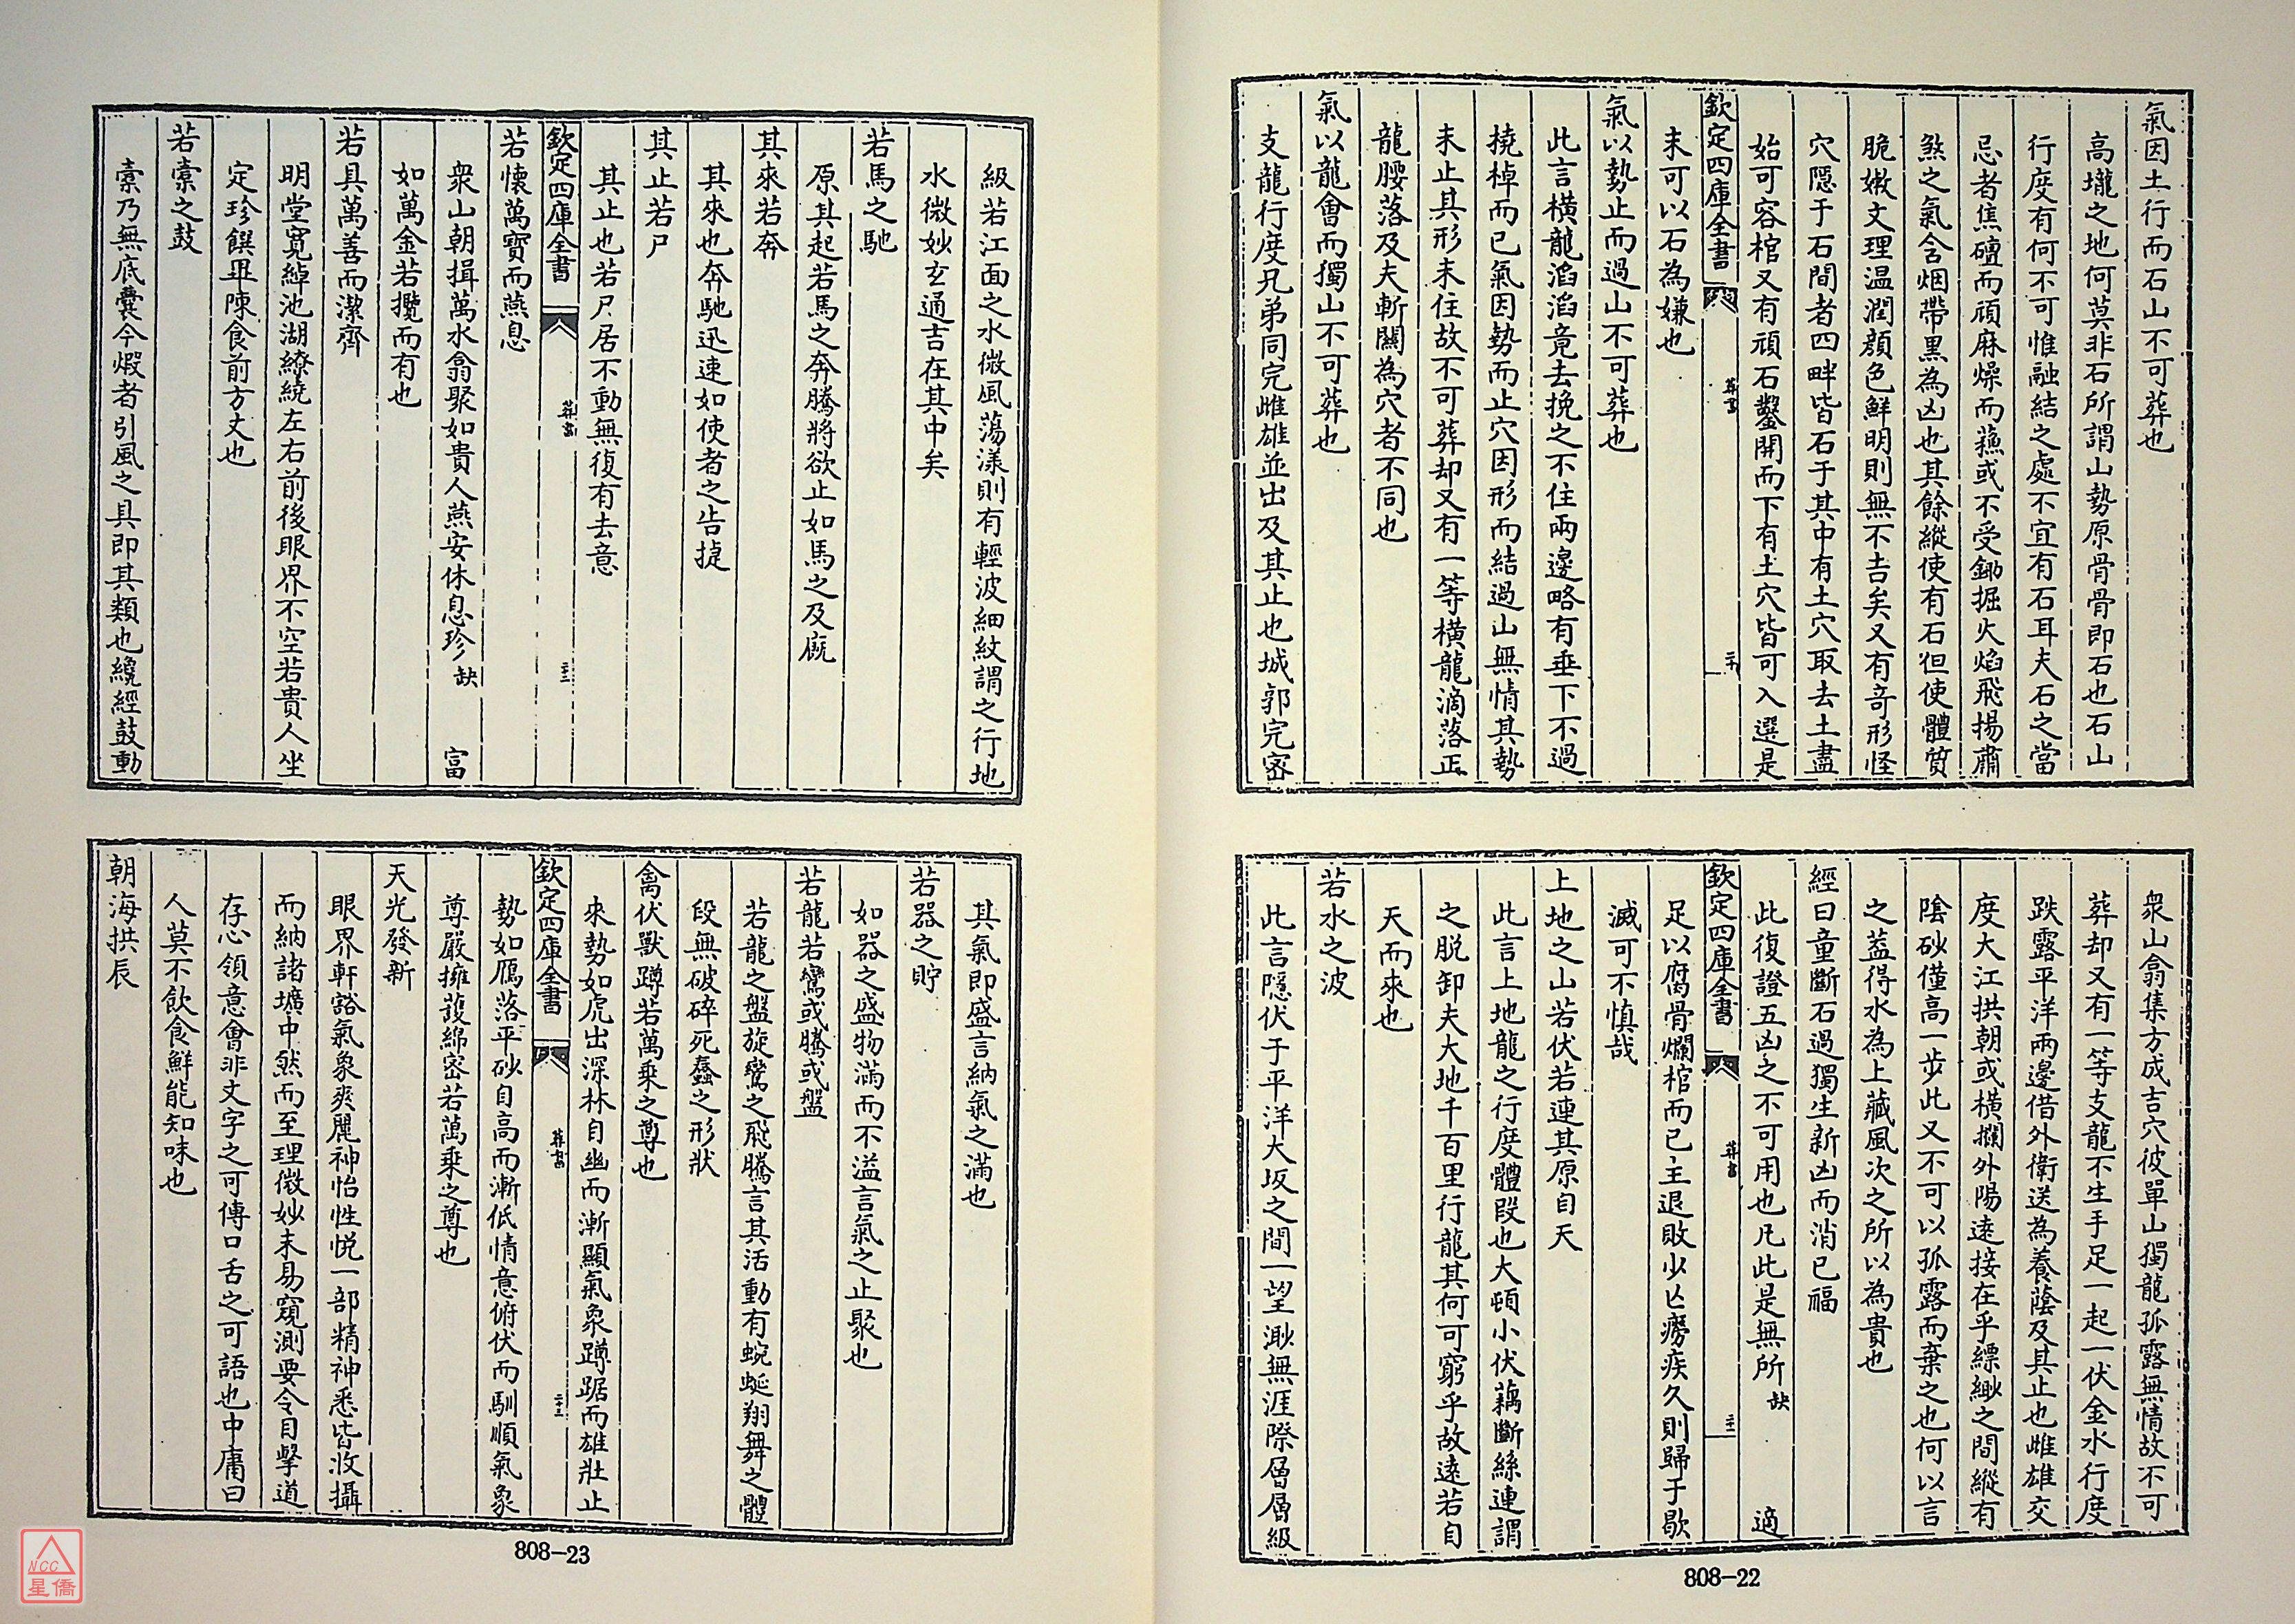 氣因土行而石山不可葬也
高壠之地何莫非石所謂山勢原骨骨即石也石山
行度有何不可惟融結之處不宜有石耳夫石之當
忌者焦𥗽而頑麻燥而蘓或不受鋤掘火焰飛揚肅
煞之氣含烟帶黑為凶也其餘縱使有石但使體質
脆嫩文理温潤顔色鮮明則無不吉矣又有竒形怪
穴隠于石間者四畔皆石于其中有土穴取去土盡
始可容棺又有頑石鑿開而下有土穴皆可入選是
欽定四庫全書
葬書
二十
未可以石為嫌也
氣以勢止而過山不可葬也
此言橫龍滔滔竟去挽之不住兩邊略有垂下不過
撓棹而已氣因勢而止穴因形而結過山無情其勢
未止其形未住故不可葬却又有一等橫龍滴落正
龍腰落及夫斬關為穴者不同也
氣以龍會而獨山不可葬也
支龍行度兄弟同完雌雄並出及其止也城郭完密
衆山翕集方成吉穴彼單山獨龍孤露無情故不可
葬却又有一等支龍不生手足一起一伏金水行度
跌露平洋兩邊借外衛送為養蔭及其止也雌雄交
度大江拱朝或橫攔外陽遠接在乎縹緲之間縱有
隂砂僅高一步此又不可以孤露而棄之也何以言
之葢得水為上藏風次之所以為貴也
經曰童斷石過獨生新凶而消已福
此復證五凶之不可用也凡此是無所 缺 適
欽定四庫全書
葬書
二十一
足以腐骨爛棺而已主退敗少亡癆疾久則歸于歇
滅可不慎哉
上地之山若伏若連其原自天
此言上地龍之行度體段也大頓小伏藕斷絲連謂
之脱卸夫大地千百里行龍其何可窮乎故遠若自
天而來也
若水之波
此言隱伏于平洋大坂之間一望渺無涯際層層級
級若江面之水微風蕩漾則有輕波細紋謂之行地
水微妙玄通吉在其中矣
若馬之馳
原其起若馬之奔騰將欲止如馬之及廐
其來若奔
其來也奔馳迅速如使者之告捷
其止若尸
其止也若尸居不動無復有去意
欽定四庫全書
葬書
二十二
若懷萬寳而燕息
衆山朝揖萬水翕聚如貴人燕安休息珍 缺 富
如萬金若攬而有也
若具萬善而潔齊
明堂寛綽池湖繚繞左右前後眼界不空若貴人坐
定珍饌畢陳食前方丈也
若橐之鼓
橐乃無底囊今煆者引風之具即其類也纔經鼓動
其氣即盛言納氣之滿也
若器之貯
如器之盛物滿而不溢言氣之止聚也
若龍若鸞或騰或盤
若龍之盤旋鸞之飛騰言其活動有蜿蜒翔舞之體
段無破碎死蠢之形狀
禽伏獸蹲若萬乘之尊也
來勢如虎出深林自幽而漸顯氣象蹲踞而雄壯止
欽定四庫全書
葬書
二十三
勢如鴈落平砂自高而漸低情意俯伏而馴順氣象
尊嚴擁䕶綿宻若萬乗之尊也
天光發新
眼界軒豁氣象爽麗神怡性悦一部精神悉皆收攝
而納諸壙中然而至理微妙未易窺測要令目擊道
存心領意會非文字之可傳口舌之可語也中庸曰
人莫不飲食鮮能知味也
朝海拱辰
808-22
808-23
NCC
星僑